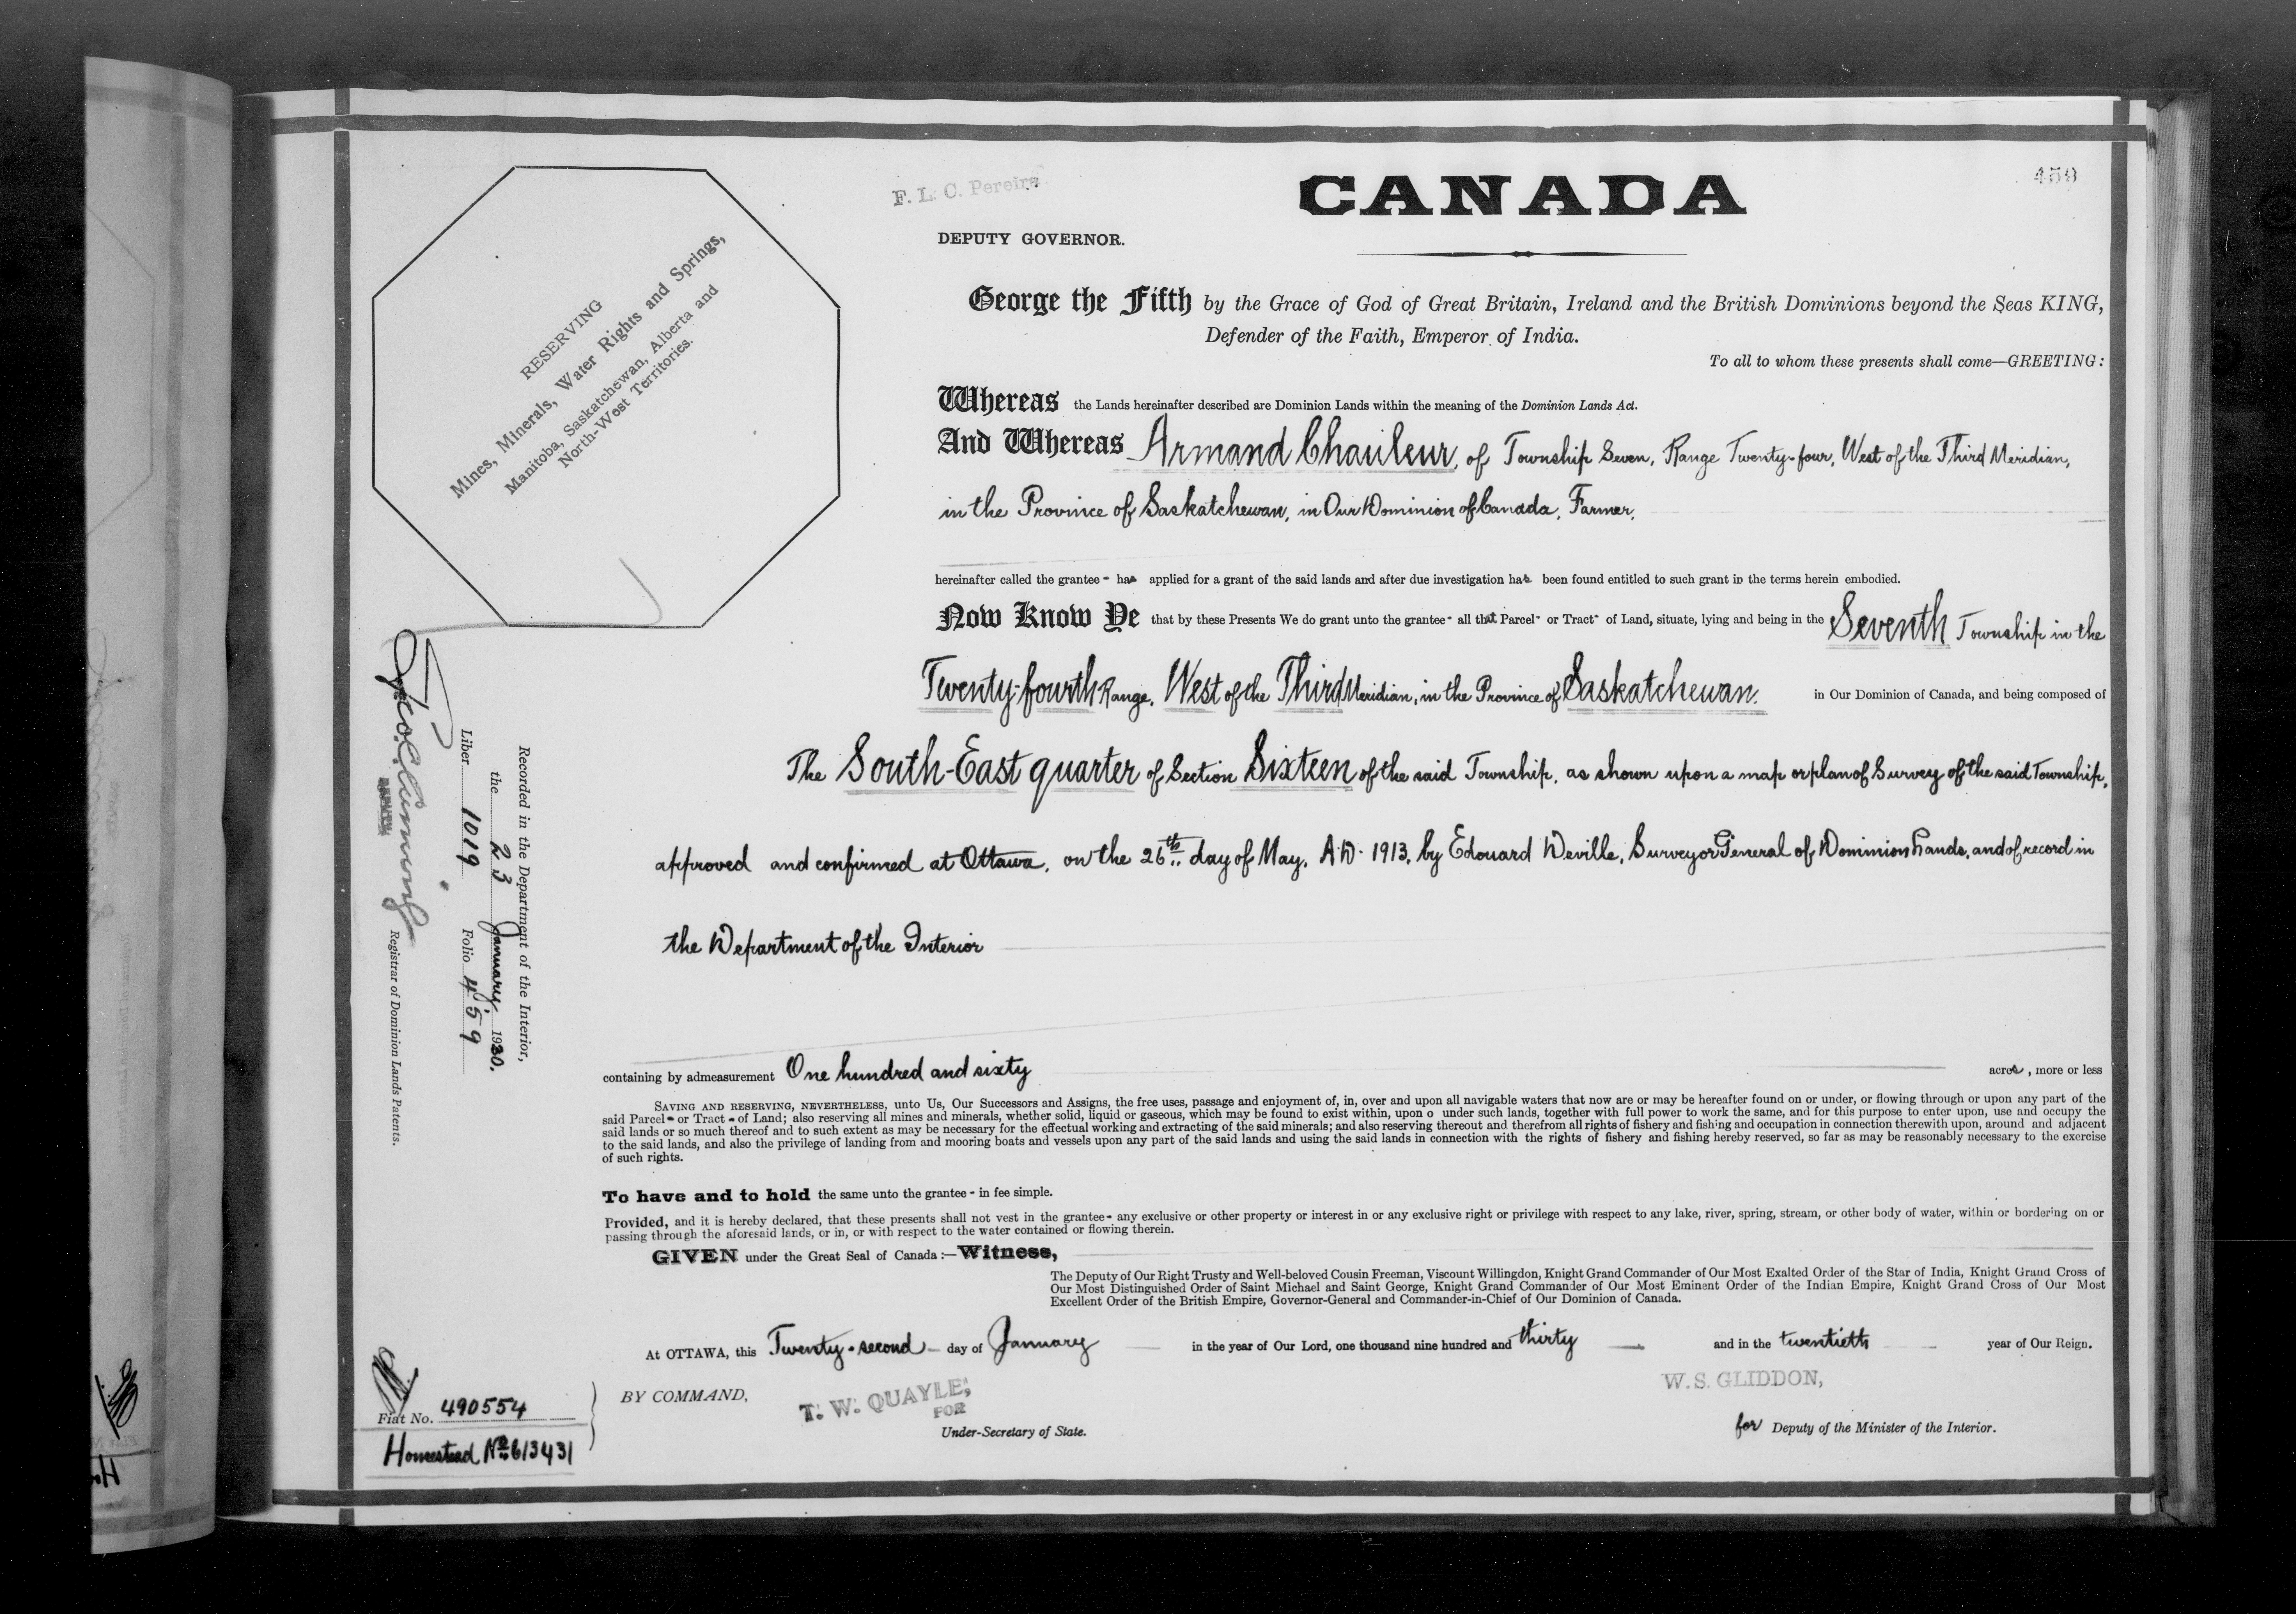 459
F. L. C. Pereira
CANADA
DEPUTY GOVERNOR.
RESERVING
Mines, Minerals, Water Rights and Springs,
Manitoba, Saskatchewan, Alberta and
North-West Territories.
George the Fifth by the Grace of God of Great Britain, Ireland and the British Dominions beyond the Seas KING,
Defender of the Faith, Emperor of India.
To all to whom these presents shall come—GREETING:
Whereas the Lands hereinafter described are Dominion Lands within the meaning of the Dominion Lands Act.
And Whereas Armand Chauleur, of Township Seven, Range Twenty-four, West of the Third Meridian,
in the Province of Saskatchewan, in Our Dominion of Canada, Farmer,
hereinafter called the grantee - has applied for a grant of the said lands and after due investigation has been found entitled to such grant in the terms herein embodied.
Now Know Ye that by these Presents We do grant unto the grantee - all that Parcel - or Tract - of Land, situate, lying and being in the Seventh Township in the
Twenty-fourth Range, West of the Third Meridian, in the Province of Saskatchewan. in Our Dominion of Canada, and being composed of
The South-East quarter of Section Sixteen of the said Township, as shown upon a map or plan of Survey of the said Township,
approved and confirmed at Ottawa, on the 26th day of May, A.D. 1913, by Edouard Deville, Surveyor General of Dominion Lands, and of record in
the Department of the Interior
containing by admeasurement One hundred and sixty acres, more or less
SAVING AND RESERVING, NEVERTHELESS, unto Us, Our Successors and Assigns, the free uses, passage and enjoyment of, in, over and upon all navigable waters that now are or may be hereafter found on or under, or flowing through or upon any part of the
said Parcel - or Tract - of Land; also reserving all mines and minerals, whether solid, liquid or gaseous, which may be found to exist within, upon o under such lands, together with full power to work the same, and for this purpose to enter upon, use and occupy the
said lands or so much thereof and to such extent as may be necessary for the effectual working and extracting of the said minerals; and also reserving thereout and therefrom all rights of fishery and fishing and occupation in connection therewith upon, around and adjacent
to the said lands, and also the privilege of landing from and mooring boats and vessels upon any part of the said lands and using the said lands in connection with the rights of fishery and fishing hereby reserved, so far as may be reasonably necessary to the exercise
of such rights.
To have and to hold the same unto the grantee - in fee simple.
Provided, and it is hereby declared, that these presents shall not vest in the grantee - any exclusive or other property or interest in or any exclusive right or privilege with respect to any lake, river, spring, stream, or other body of water, within or bordering on or
passing through the aforesaid lands, or in, or with respect to the water contained or flowing therein.
GIVEN under the Great Seal of Canada :—Witness,
The Deputy of Our Right Trusty and Well-beloved Cousin Freeman, Viscount Willingdon, Knight Grand Commander of Our Most Exalted Order of the Star of India, Knight Grand Cross of
Our Most Distinguished Order of Saint Michael and Saint George, Knight Grand Commander of Our Most Eminent Order of the Indian Empire, Knight Grand Cross of Our Most
Excellent Order of the British Empire, Governor-General and Commander-in-Chief of Our Dominion of Canada.
At OTTAWA, this Twenty-second day of January in the year of Our Lord, one thousand nine hundred and thirty and in the twentieth year of Our Reign.
BY COMMAND,
T. W. QUAYLE,
FOR
Under-Secretary of State.
W. S. GLIDDON,
for Deputy of the Minister of the Interior.
Recorded in the Department of the Interior,
the 23 January, 1930.
Liber 1019 Folio 459
DEPUTY
Registrar of Dominion Lands Patents.
Fiat No. 490554
Homestead No. 613431